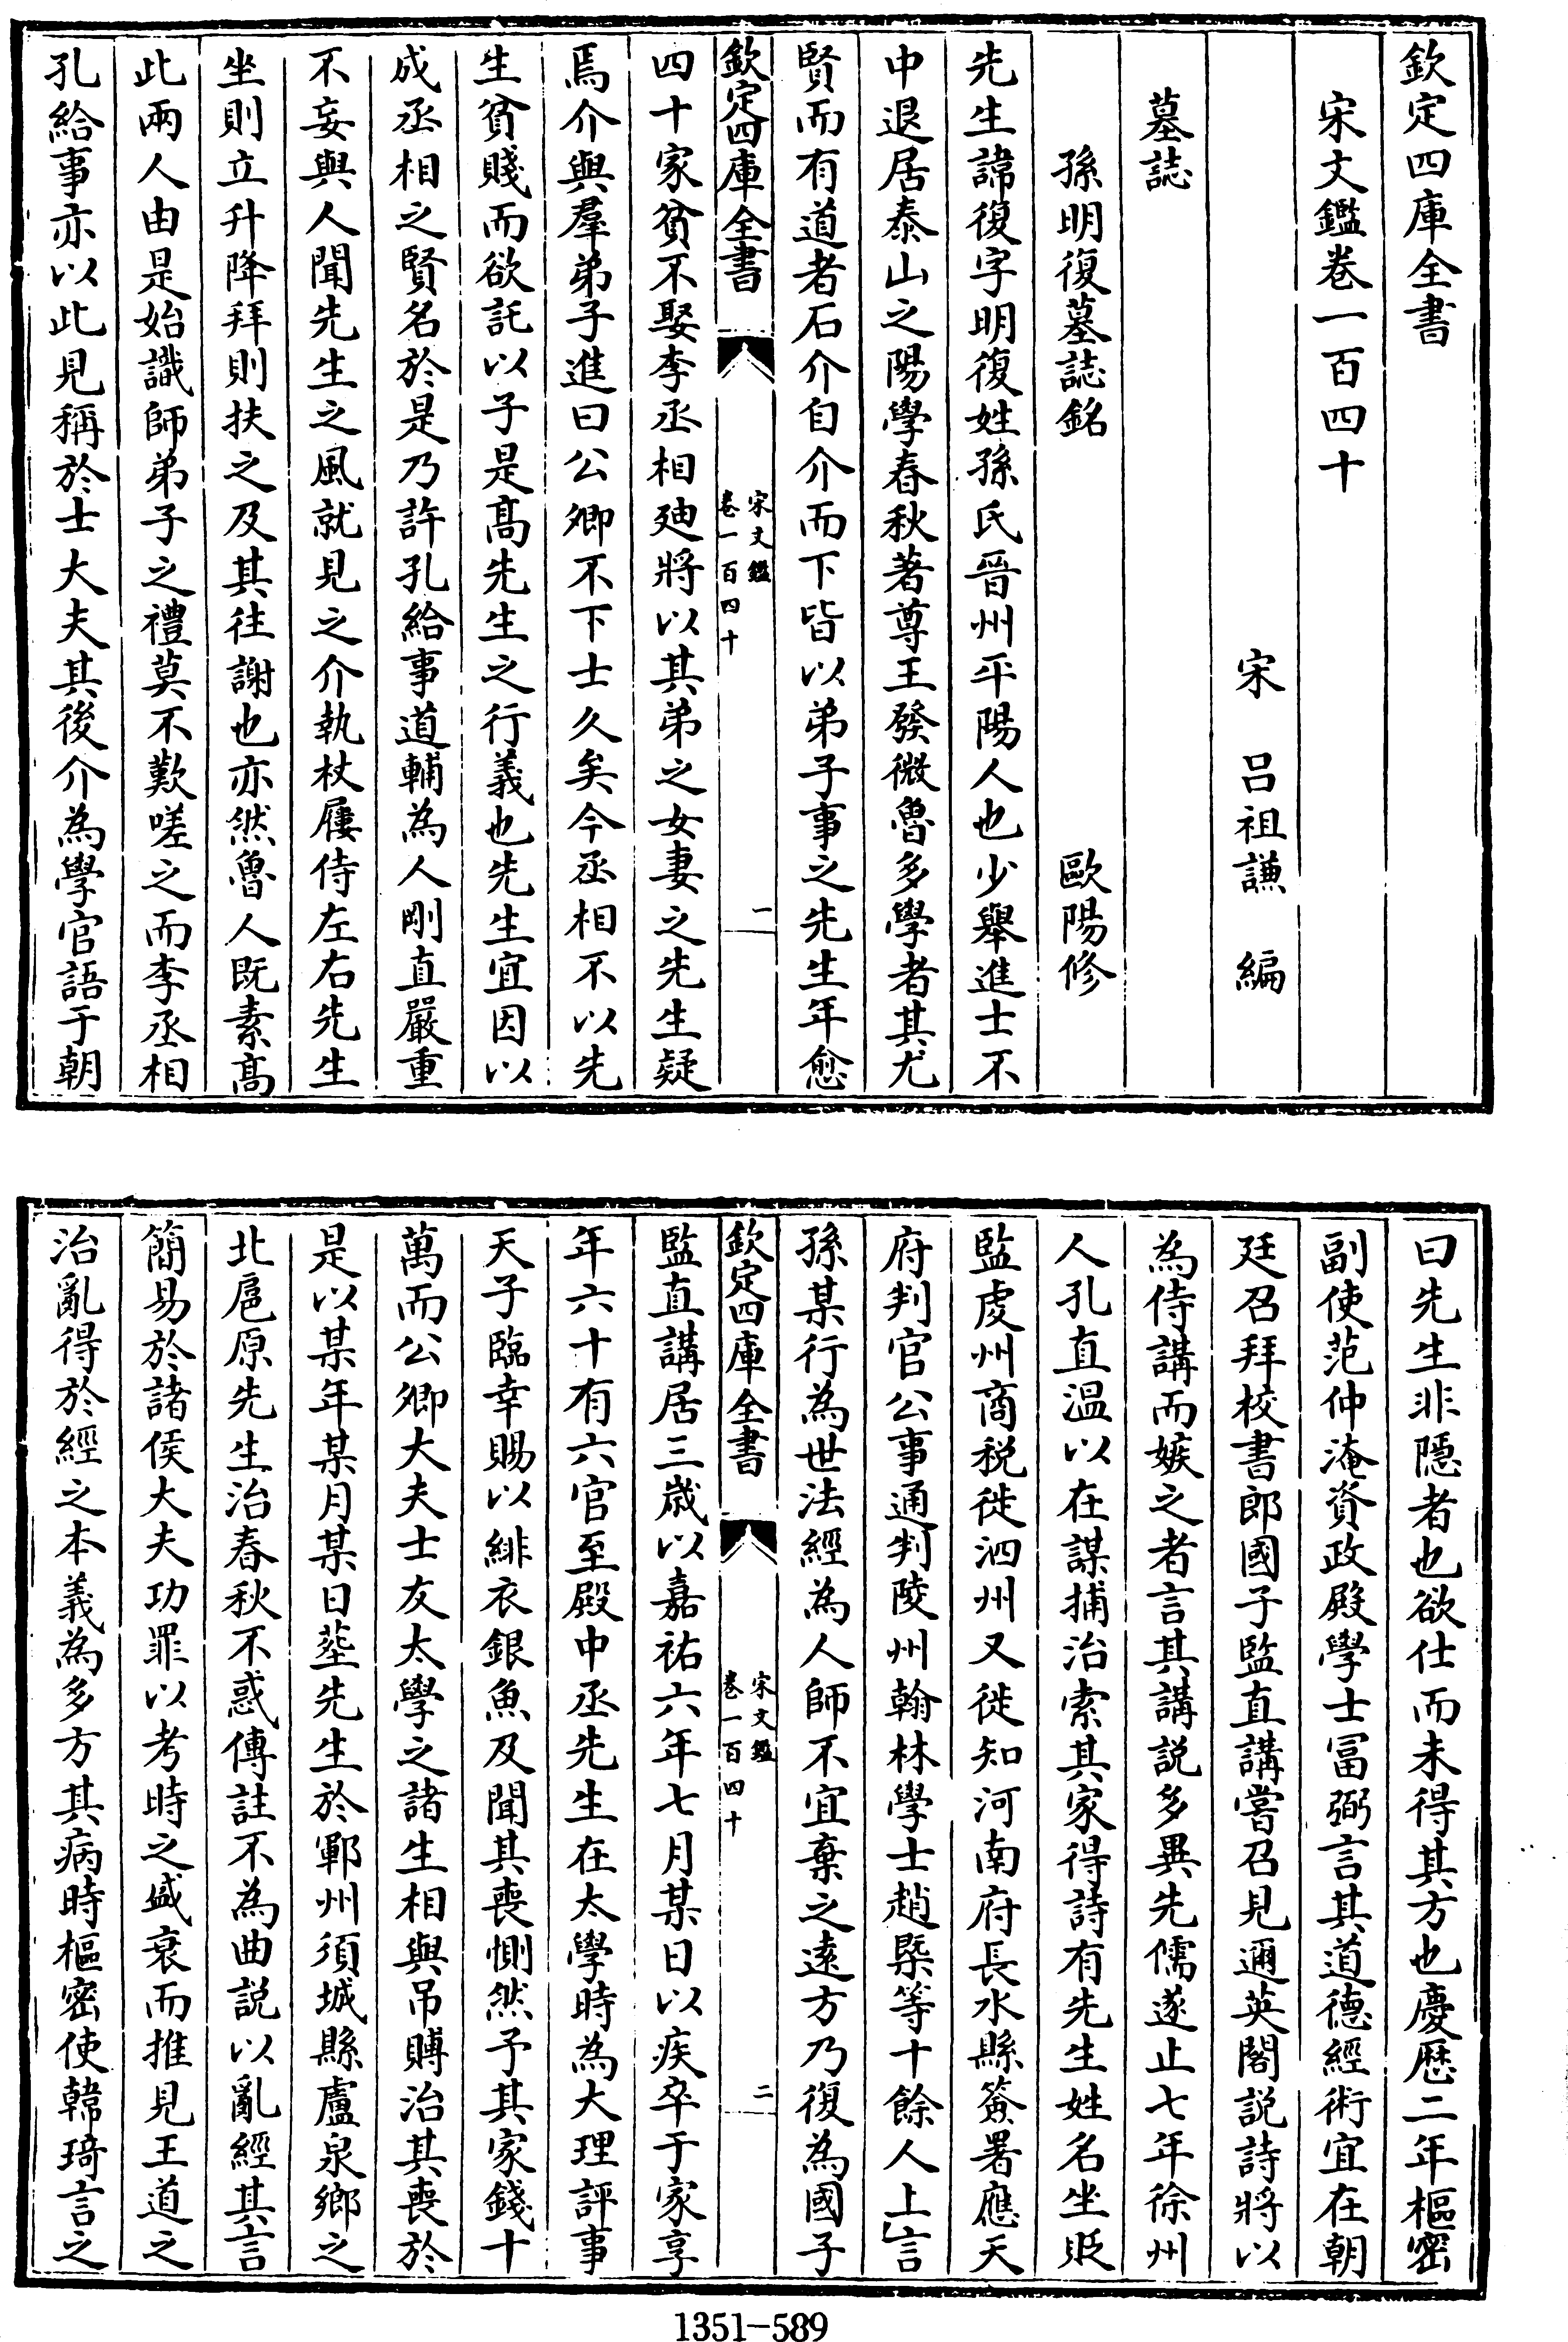 欽定四庫全書
宋文鑑卷一百四十
宋　吕祖謙　編
墓誌
孫明復墓誌銘　歐陽修
先生諱復字明復姓孫氏晉州平陽人也少舉進士不
中退居泰山之陽學春秋著尊王發微魯多學者其尤
賢而有道者石介自介而下皆以弟子事之先生年愈
欽定四庫全書
宋文鑑
卷一百四十
一
四十家貧不娶李丞相廸將以其弟之女妻之先生疑
焉介與羣弟子進曰公卿不下士久矣今丞相不以先
生貧賤而欲託以子是髙先生之行義也先生宜因以
成丞相之賢名於是乃許孔給事道輔為人剛直嚴重
不妄與人聞先生之風就見之介執杖屨侍左右先生
坐則立升降拜則扶之及其往謝也亦然魯人既素髙
此兩人由是始識師弟子之禮莫不歎嗟之而李丞相
孔給事亦以此見稱於士大夫其後介為學官語于朝
曰先生非隱者也欲仕而未得其方也慶厯二年樞密
副使范仲淹資政殿學士富弼言其道德經術宜在朝
廷召拜校書郎國子監直講嘗召見邇英閣説詩將以
為侍講而嫉之者言其講説多異先儒遂止七年徐州
人孔直温以在謀捕治索其家得詩有先生姓名坐貶
監處州商税徙泗州又徙知河南府長水縣簽署應天
府判官公事通判陵州翰林學士趙槩等十餘人上言
孫某行為世法經為人師不宜棄之逺方乃復為國子
欽定四庫全書
宋文鑑
卷一百四十
二
監直講居三歲以嘉祐六年七月某日以疾卒于家享
年六十有六官至殿中丞先生在太學時為大理評事
天子臨幸賜以緋衣銀魚及聞其喪惻然予其家錢十
萬而公卿大夫士友太學之諸生相與吊賻治其喪於
是以某年某月某日塟先生於鄆州須城縣盧泉鄉之
北扈原先生治春秋不惑傳註不為曲説以亂經其言
簡易於諸侯大夫功罪以考時之盛衰而推見王道之
治亂得於經之本義為多方其病時樞密使韓琦言之
1351-589